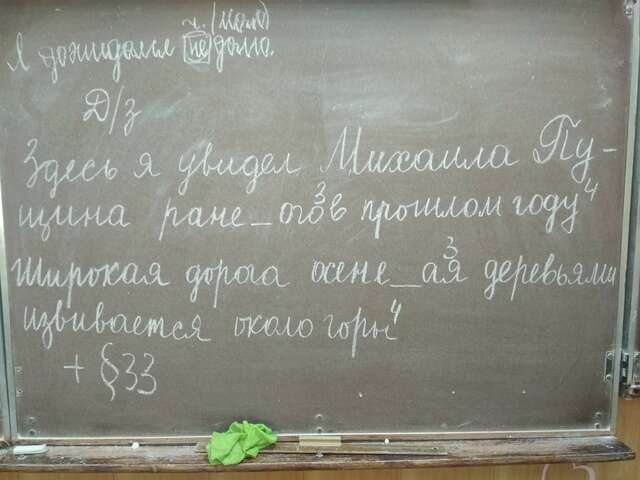 ч. (мало)
Я дожидался не долго.
Д/з
Здесь я увидел Михаила Пу-
щина ране_ого³ в прошлом году⁴
Широкая дорога осене_ая³ деревьями
извивается около горы⁴
+ §33